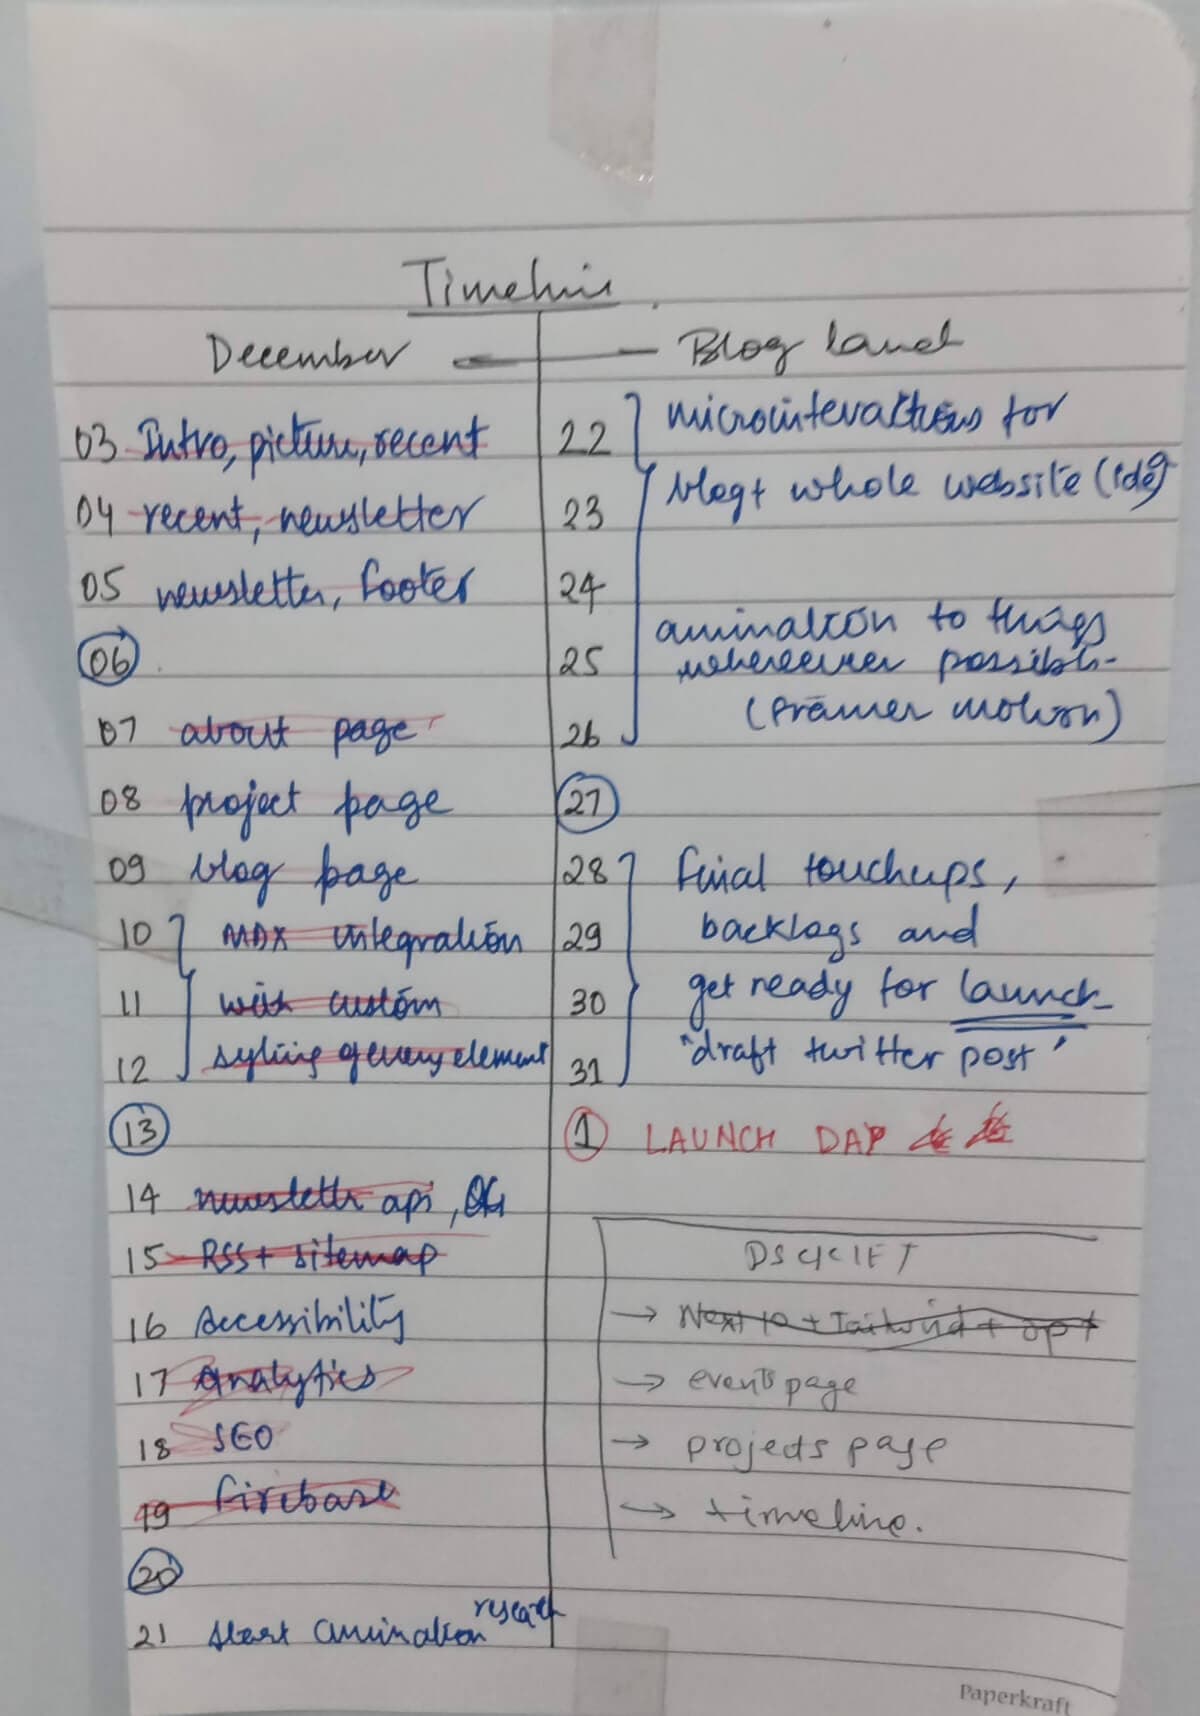 Timeline
December — Blog launch
03 Intro, picture, recent
04 recent, newsletter
05 newsletter, footer
06
07 about page
08 project page
09 blog page
10 MDX integration
11 with custom
12 styling of every element
13
14 newsletter api, OG
15 RSS + sitemap
16 Accessibility
17 Analytics
18 SEO
19 firebase
20
21 start animation research
22 microinteractions for
23 blog + whole website
24
25 animation to things
whereever possible
26 (Framer motion)
27
28 final touchups,
29 backlogs and
30 get ready for launch
31 "draft twitter post"
1 LAUNCH DAY
→ Next 10 + Tailwind + opt
→ events page
→ projects page
→ timeline.
Paperkraft